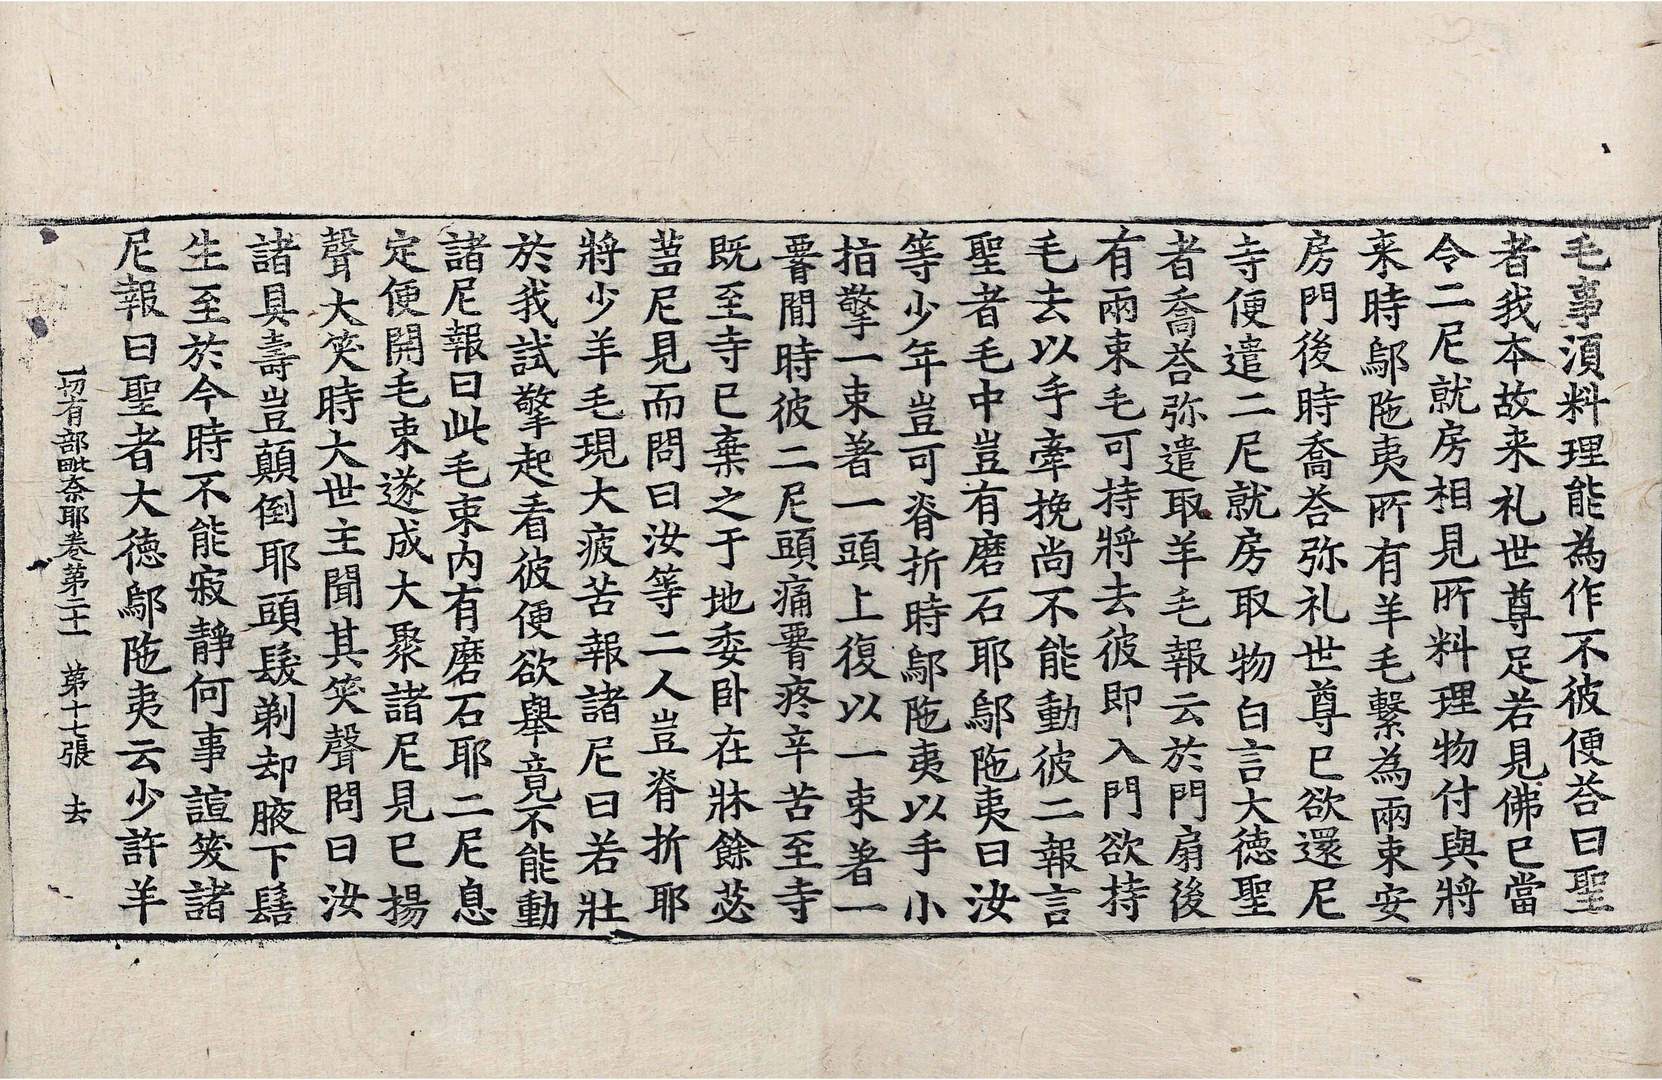 毛事湏料理能為作不彼便荅曰聖
者我本故来礼世尊足若見佛已當
令二尼就房相見所料理物付與將
来時鄔陁夷所有羊毛繫為兩束安
房門後時喬荅弥礼世尊已欲還尼
寺便遣二尼就房取物白言大德聖
者喬荅弥遣取羊毛報云於門扇後
有兩束毛可持將去彼即入門欲持
毛去以手牽挽尚不能動彼二報言
聖者毛中豈有磨石耶鄔陁夷曰汝
等少年豈可脊折時鄔陁夷以手小
指擎一束著一頭上復以一束著一
䯗閒時彼二尼頭痛䯗疼辛苦至寺
既至寺已棄之于地委卧在牀餘苾
芻尼見而問曰汝等二人豈脊折耶
將少羊毛現大疲苦報諸尼曰若壯
於我試擎起看彼便欲舉竟不能動
諸尼報曰此毛束内有磨石耶二尼息
定便開毛束遂成大聚諸尼見已揚
聲大笑時大世主聞其笑聲問曰汝
諸具壽豈顛倒耶頭髮剃却腋下髻
生至於今時不能寂靜何事諠笑諸
尼報曰聖者大德鄔陁夷云少許羊
一切有部毗奈耶卷第二十一　第十七張　去